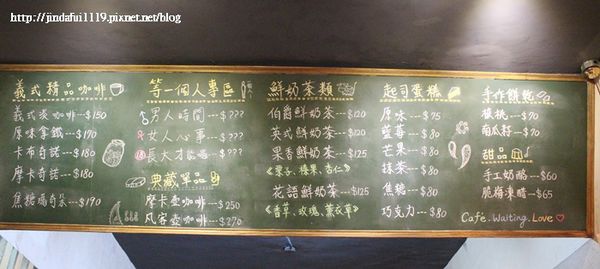 http://jindafui1119.pixnet.net/blog
義式精品咖啡
義式淡咖啡---$150
原味拿鐵---$170
卡布奇諾---$180
摩卡奇諾---$180
焦糖瑪奇朵---$190
等一個人專區
男人時間---$???
女人心事---$???
長大才能喝---$???
典藏單品
摩卡壺咖啡--$250
風客壺咖啡--$270
鮮奶茶類
伯爵鮮奶茶---$120
英式鮮奶茶---$120
果香鮮奶茶---$125
《栗子、榛果、杏仁》
花語鮮奶茶---$125
《香草、玫瑰、薰衣草》
起司蛋糕
原味---$75
藍莓---$80
芒果---$80
抹茶---$80
焦糖---$80
巧克力---$80
手作餅乾
核桃---$70
南瓜籽--$70
甜品
手工奶酪---$60
脆嶺凍醋--$65
Café.Waiting.Love